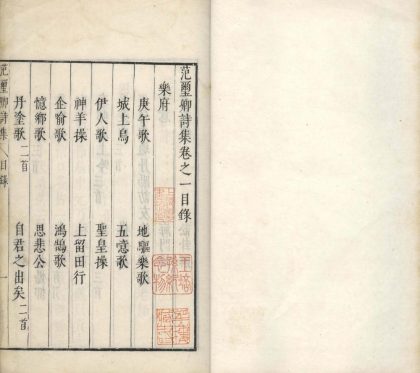 范璽卿詩集卷之一目錄
樂府
庚午歌 地驅樂歌
城上烏 五意歌
伊人歌 聖皇操
神羊操 上留田行
企喻歌 鴻鵠歌
憶鄉歌 思悲公
丹塗歌二首 自君之出矣二首
范璽卿詩集 目錄 一